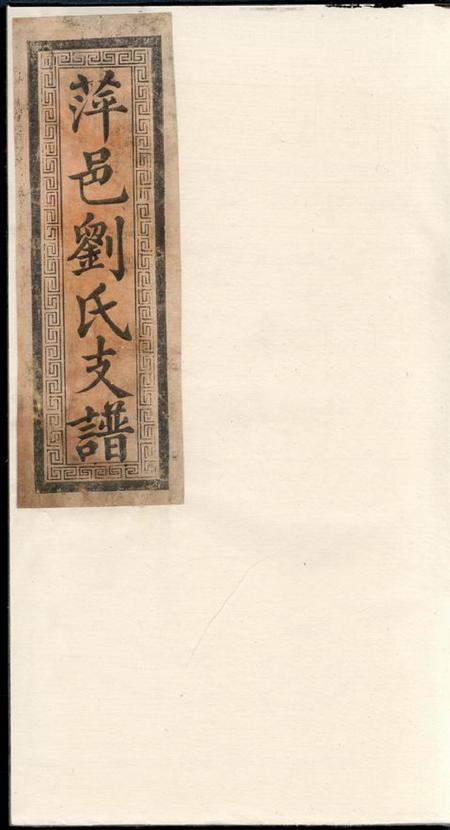 萍邑劉氏支譜